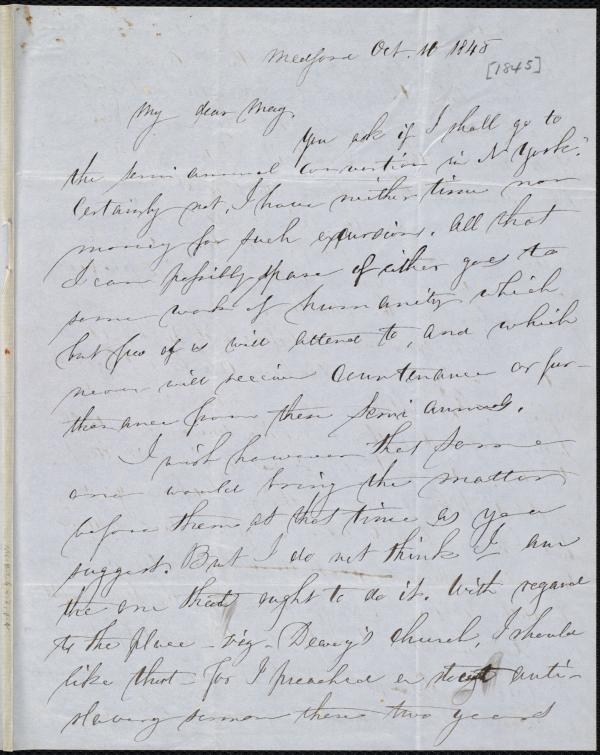 Medford Oct. 10 1845
[1845]
My dear May,
You ask if I shall go to
the semi annual convention in N York?
Certainly not, I have neither time nor
money for such excursions. All that
I can possibly spare of either goes to
some work of humanity which
but few of us will attend to, and which
never will receive countenance or fur-
therance from these semi annuals.
I wish however that some
one would bring the matter
before them at that time as you
suggest. But I do not think I am
the one that ought to do it. With regard
to the place - viz - Dewey's church, I should
like that for I preached a stout anti-
slavery sermon there two years